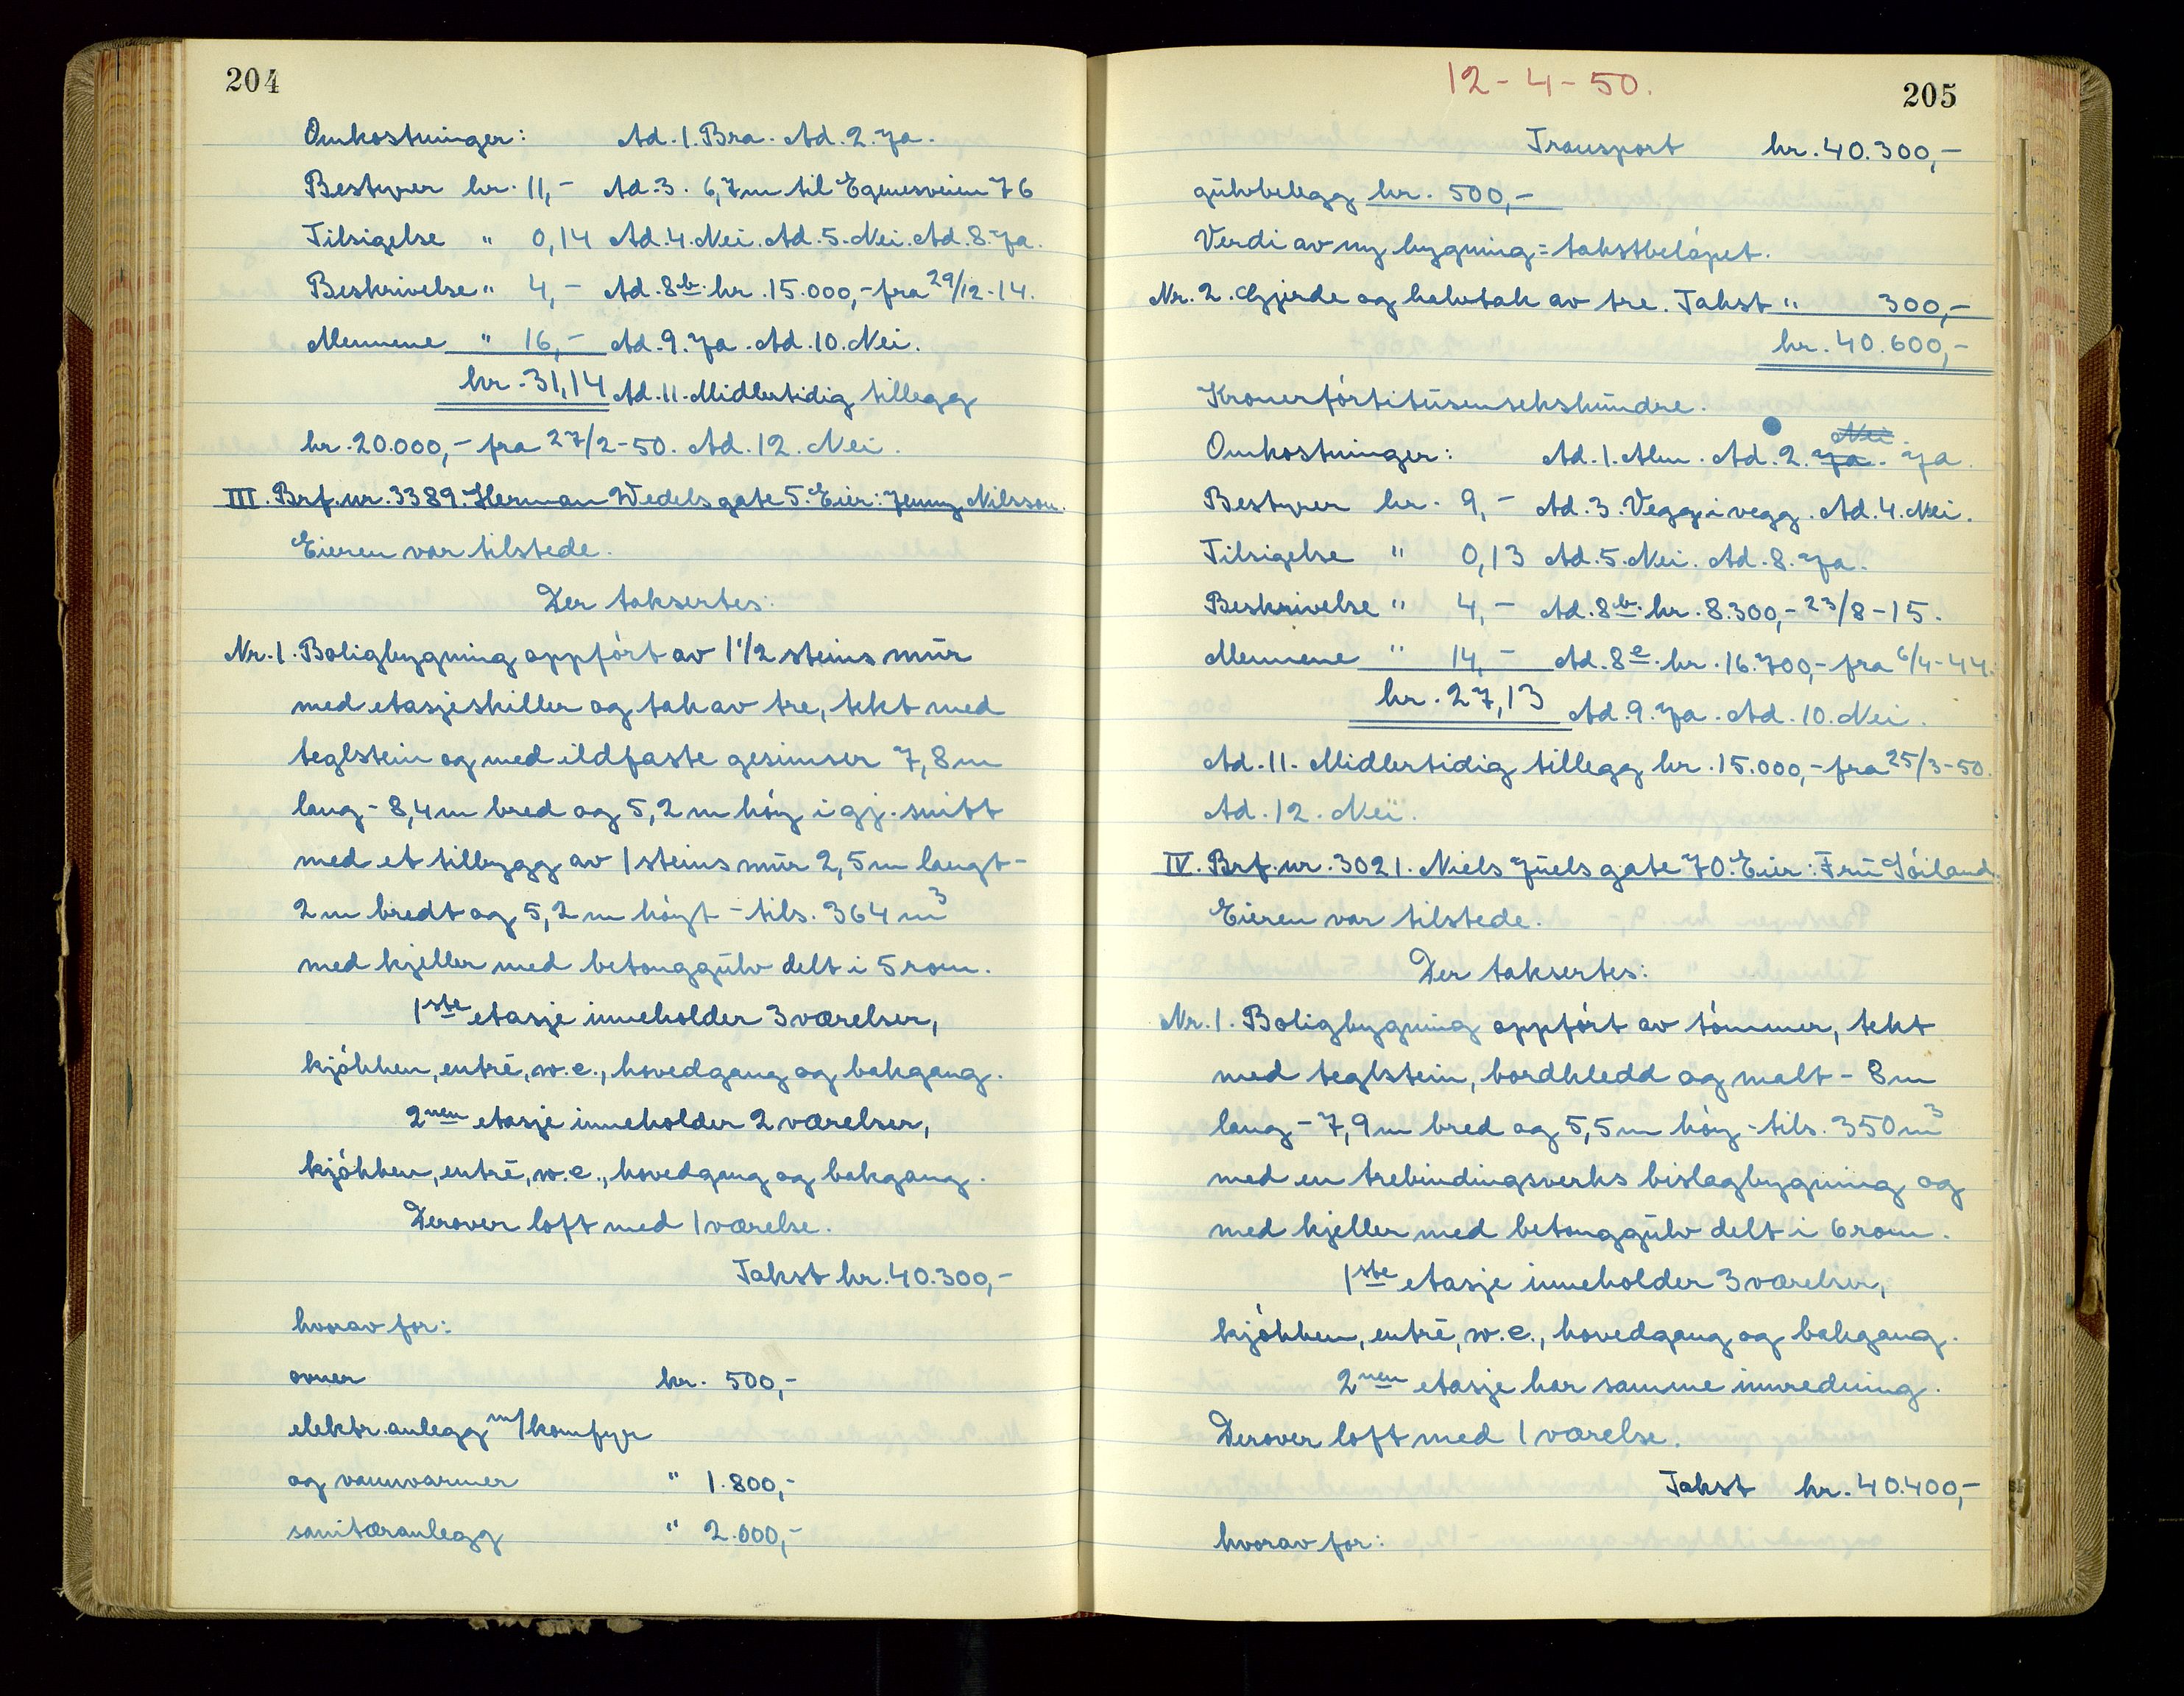 204
Omkostninger: Ad.1.Bra. Ad.2.Ja.
Bestyrer kr. 11,- Ad.3. 6,7m til Egenesveien 76
Tilsigelse " 0,14 Ad.4.Nei.Ad.5.Nei.Ad.8.Ja.
Beskrivelse " 4,- Ad.8b. kr.15.000,- fra 29/12-14.
Mennene " 16,- Ad.9.Ja.Ad.10.Nei.
kr.31,14 Ad.11.Midlertidig tillegg
kr.20.000,- fra 27/2-50. Ad.12.Nei.
III. Brf.nr.3389. Herman Wedels gate 5. Eier: Jenny Nilsson.
Eieren var tilstede.
Der taksertes:
Nr.1. Boligbygning oppført av 1 1/2 steins mur
med etasjeskiller og tak av tre, tekt med
teglstein og med ildfaste gesimser 7,8m
lang - 8,4m bred og 5,2m høy i gj.snitt
med et tilbygg av 1 steins mur 2,5m langt -
2m bredt og 5,2m høyt - tils. 364 m3
med kjeller med betonggulv delt i 5 rom.
1ste etasje inneholder 3 værelser,
kjøkken, entré, w.c., hovedgang og bakgang.
2nen etasje inneholder 2 værelser,
kjøkken, entré, w.c., hovedgang og bakgang.
Derover loft med 1 værelse.
Takst kr.40.300,-
hvorav for:
ovner kr. 500,-
elektr.anlegg m/komfyr
og vannvarmer " 1.800,-
sanitæranlegg " 2.000,-
12-4-50.
205
Transport kr.40.300,-
gulvbelegg kr. 500,-
Verdi av ny bygning = takstbeløpet.
Nr.2. Gjerde og halvtak av tre. Takst " 300,-
kr.40.600,-
Kronerførtitusensekshundre.
Nei.
Omkostninger: Ad.1.Alm. Ad.2.Ja. Ja.
Bestyrer kr. 9,- Ad.3.Vegg i vegg. Ad.4.Nei.
Tilsigelse " 0,13 Ad.5.Nei. Ad.8.Ja.
Beskrivelse " 4,- Ad.8b. kr.8.300,- 23/8-15.
Mennene " 14,- Ad.8c. kr.16.700,- fra 6/4-44.
kr.27,13 Ad.9.Ja.Ad.10.Nei.
Ad.11. Midlertidig tillegg kr.15.000,- fra 25/3-50.
Ad.12.Nei.
IV. Brf.nr.3021. Niels Juels gate 70. Eier: Fru Søiland.
Eieren var tilstede.
Der taksertes:
Nr.1. Boligbygning oppført av tømmer, tekt
med teglstein, bordkledd og malt - 8m
lang - 7,9m bred og 5,5m høy - tils. 350m3
med en trebindingsverks bislagbygning og
med kjeller med betonggulv delt i 6 rom.
1ste etasje inneholder 3 værelser,
kjøkken, entré, w.c., hovedgang og bakgang.
2nen etasje har samme innredning.
Derover loft med 1 værelse.
Takst kr.40.400,-
hvorav for: